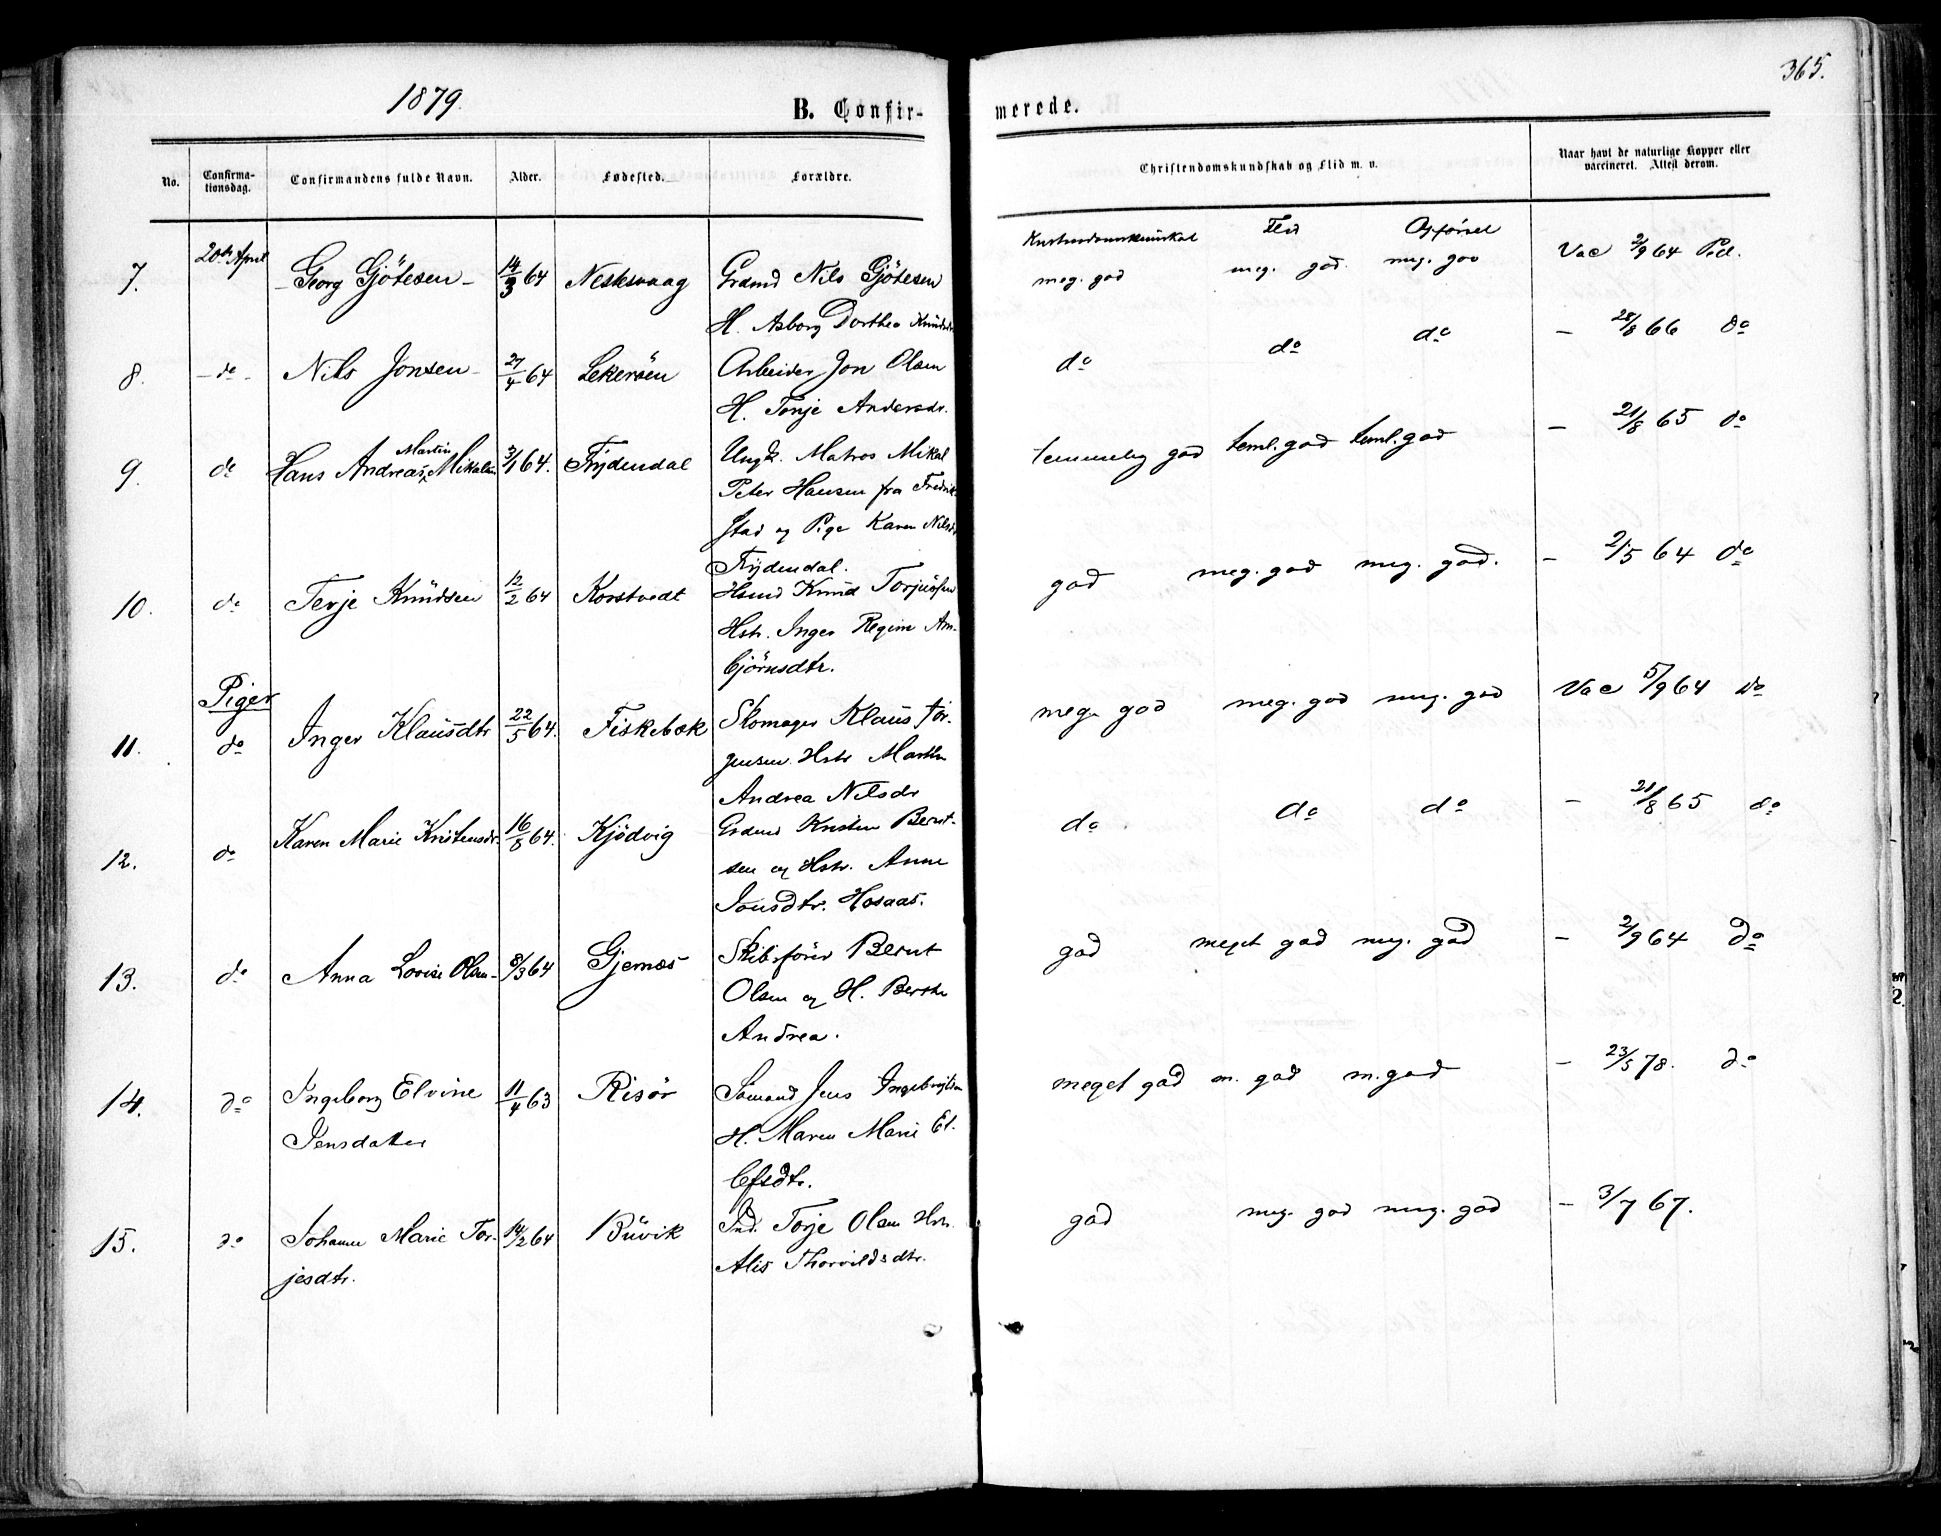 1879.
365.
B. Confir-
merede.
No.
Confirma-
tionsdag.
Confirmandens fulde Navn.
Alder.
Fødested.
Forældre.
Christendomskundskab og Flid m. v.
Naar havt de naturlige Kopper eller
vaccineret. Attest derom.
Flid Opførsel
7. 20de April Georg Gjötesen 14/3 64 Nesksvaag Grdmd Nils Gjötesen meg. god meg. god. meg. god Vac 2/9 64
H. Asborg Dorthea
8. do Nils Jonsen 27/4 64 Lekersöen Arbeider Jon Olsen do do do - 28/8 66 do
H. Tonje Andersdr.
9. do Hans Andreas Martin Mikalsen 3/1 64. Frydendal Ungk. Matros Mikal temmelig god teml. god teml. god - 21/8 65 do
Peter Hansen fra Fredrik
stad og Pige Karen Nilsd
Frydendal.
10. do Terje Knudsen 12/2 64 Korstvedt Hsmd Knud Torjusen god meg. god meg. god. - 2/5 64 do
Hstr. Inger Regine Am-
björnsdtr.
Piger
11. do Inger Klausdtr 22/5 64. Fiskebæk Skomager Klaus Jör- meg. god meg. god meg. god Vac 5/9 64 do
gensen. Hstr Marthe
Andrea Nilsdr
12. do Karen Marie Kristensdr. 16/8 64. Kjödvig Grdmd Kristen Bernt- do do do - 21/8 65 do
sen og Hstr. Anne
Jonsdtr. Hosaas.
13. do Anna Lovise Olsen 8/3 64 Gjernæs Skibsförer Bernt god meget god meg. god - 2/9 64 do
Olsen og H. Berthe
Andrea.
14. do Ingeborg Elvine 11/4 63 Risör Sömand Jens Ingebrigtsen meget god m. god m. god - 23/5 78. do
Jensdatter H. Maren Marie El-
lefsdtr.
15. do Johanne Marie Tor- 14/2 64 Buvik Ind. Torje Olsen Hstr. god meg. god meg. god - 3/7 67.
jesdtr. Alis Thorvildsdtr.